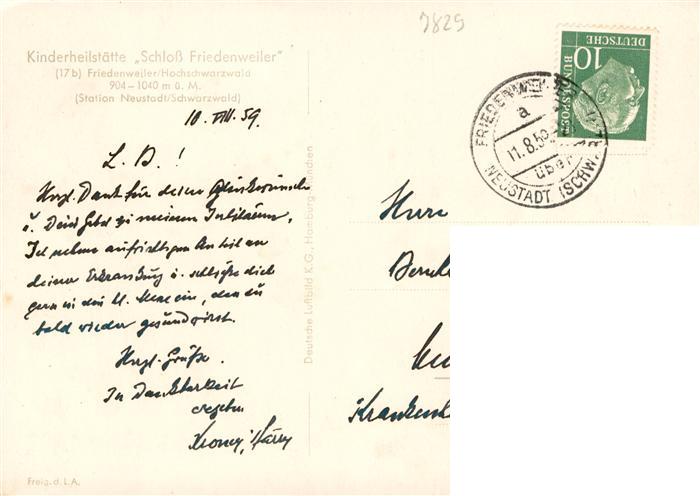 7829
Kinderheilstätte „Schloß Friedenweiler"
(17b) Friedenweiler/Hochschwarzwald
904–1040 m ü. M.
(Station Neustadt/Schwarzwald)
10. VIII. 59.
L. B.!
Herzl. Dank für deine Glückwünsche
u. Dein Gebet zu meinem Jubiläum.
Ich nehme aufrichtigen Anteil an
deiner Erkrankung u. schließe dich
gern in die hl. Messe ein, dass du
bald wieder gesund wirst.
Herzl. Grüße.
In Dankbarkeit
ergeben
Deutsche Luftbild K.G., Hamburg
Freig. d. L.A.
10
DEUTSCHE
BUNDESPOST
FRIEDENWEILER
a
11.8.59
über
NEUSTADT (SCHW.
Herrn
Krankenh